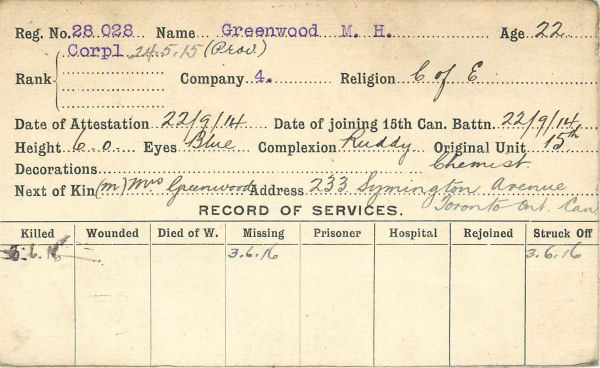 Reg. No. 28 028 Name Greenwood M. H. Age 22
Corpl 24.5.15 (Prov)
Rank Company 4. Religion C of E
Date of Attestation 22/9/14 Date of joining 15th Can. Battn. 22/9/14
Height 6.0 Eyes Blue Complexion Ruddy Original Unit 15th
Decorations Chemist
Next of Kin (m) Mrs Greenwood Address 233 Symington Avenue
Toronto Ont. Can
RECORD OF SERVICES.
Killed Wounded Died of W. Missing Prisoner Hospital Rejoined Struck Off
3.6.16 3.6.16 3.6.16